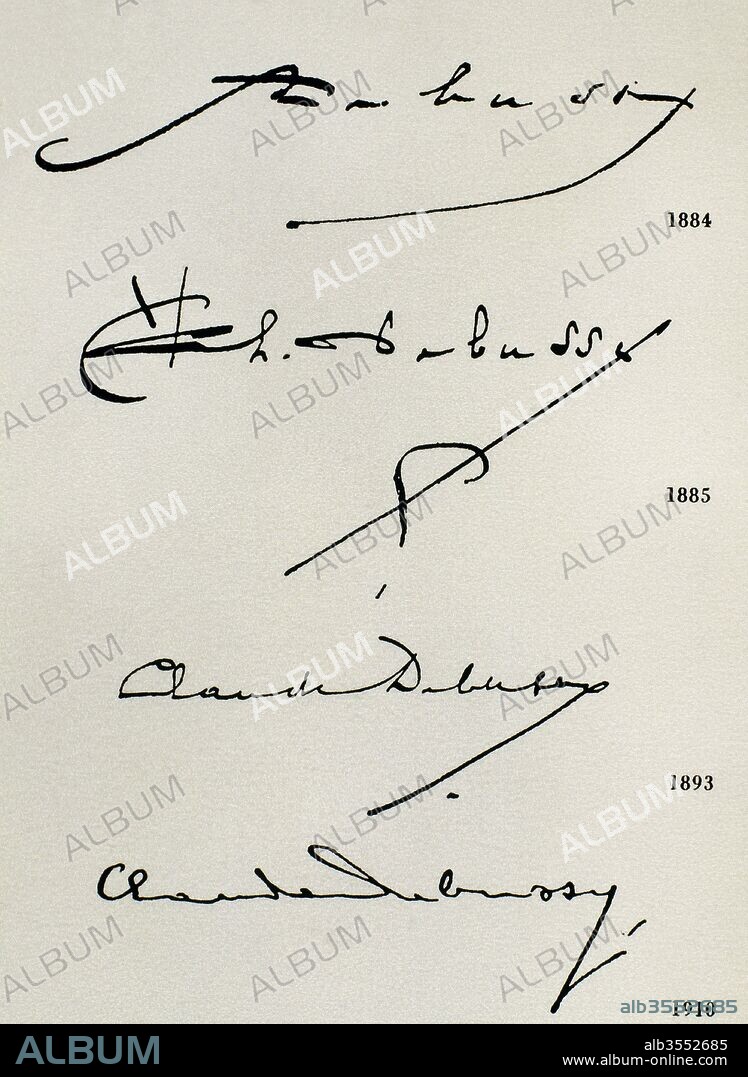 ADebussy
1884
Ch. Debussy
1885
Claude Debussy
1893
Claude Debussy
1910
alb3553685
ALBUM
alb3552685
www.album-online.com